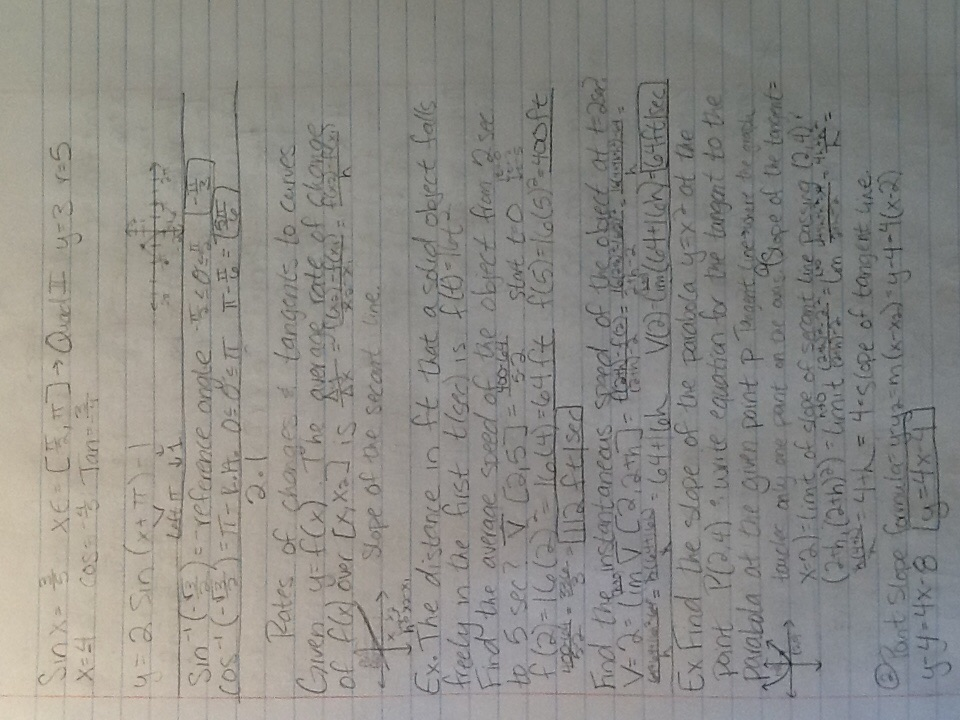 Sin x = 3/5 x ∈ = [π/2, π] → Quad II y=3 r=5
x=-4 cos = -4/5 Tan = 3/-4
y = 2 Sin (x + π) - 1
Left π ↓1
Sin⁻¹(-√3/2) = -reference angle -π/2 ≤ θ ≤ π/2
cos⁻¹(-√3/2) = π - R.A. 0 ≤ θ ≤ π π - π/6 = 5π/6
2.1
Rates of changes & tangents to curves
Given y=f(x). The average rate of change
of f(x) over [x₁, x₂] is Δy/Δx = f(x₂)-f(x₁)/x₂-x₁ =
Slope of the secant line.
Ex. The distance in ft that a solid object falls
freely in the first t(sec) is f(t)=16t²
Find the average speed of the object from 2 sec
to 5 sec? V [2,5] = 400-64/5-2 start t=0
f(2)=16(2)²=16(4)=64ft f(5)=16(5)²=400ft
= 112 ft/sec
Find the instantaneous speed of the object at t=2sec
V=2=(lim V [2,2+h] =
= 64+16h V(2)=(lim(64+16h)=64ft/sec
Ex Find the slope of the parabola y=x² at the
point P(2,4) & write equation for the tangent to the
parabola at the given point P Tangent line
touches only one point on
Slope of the tangent=
x(2)=limit of slope of secant line passing (2,4);
(2+h,(2+h)²)=limit
= 4+h = 4=slope of tangent line.
② Point Slope formula: y-y₁=m(x-x₁)=y-4=4(x-2)
y-4=4x-8 y=4x-4